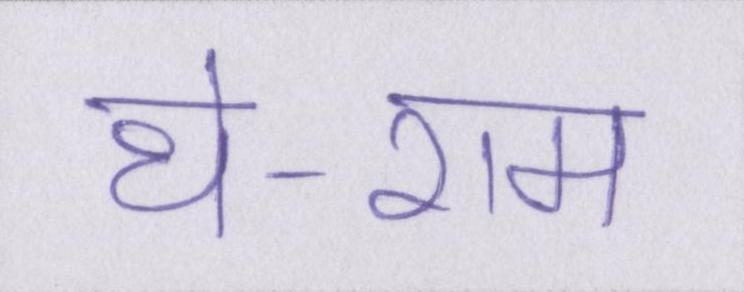 थे-राम